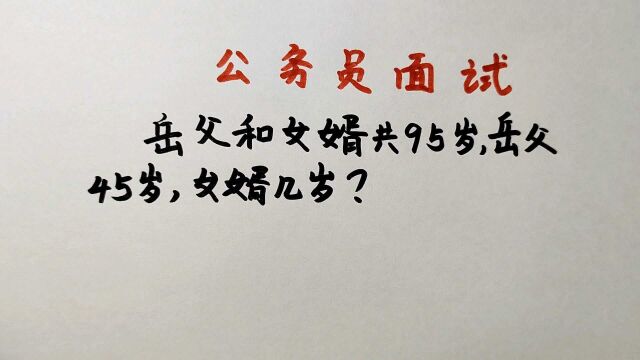 公务员面试
岳父和女婿共95岁,岳父
45岁,女婿几岁?